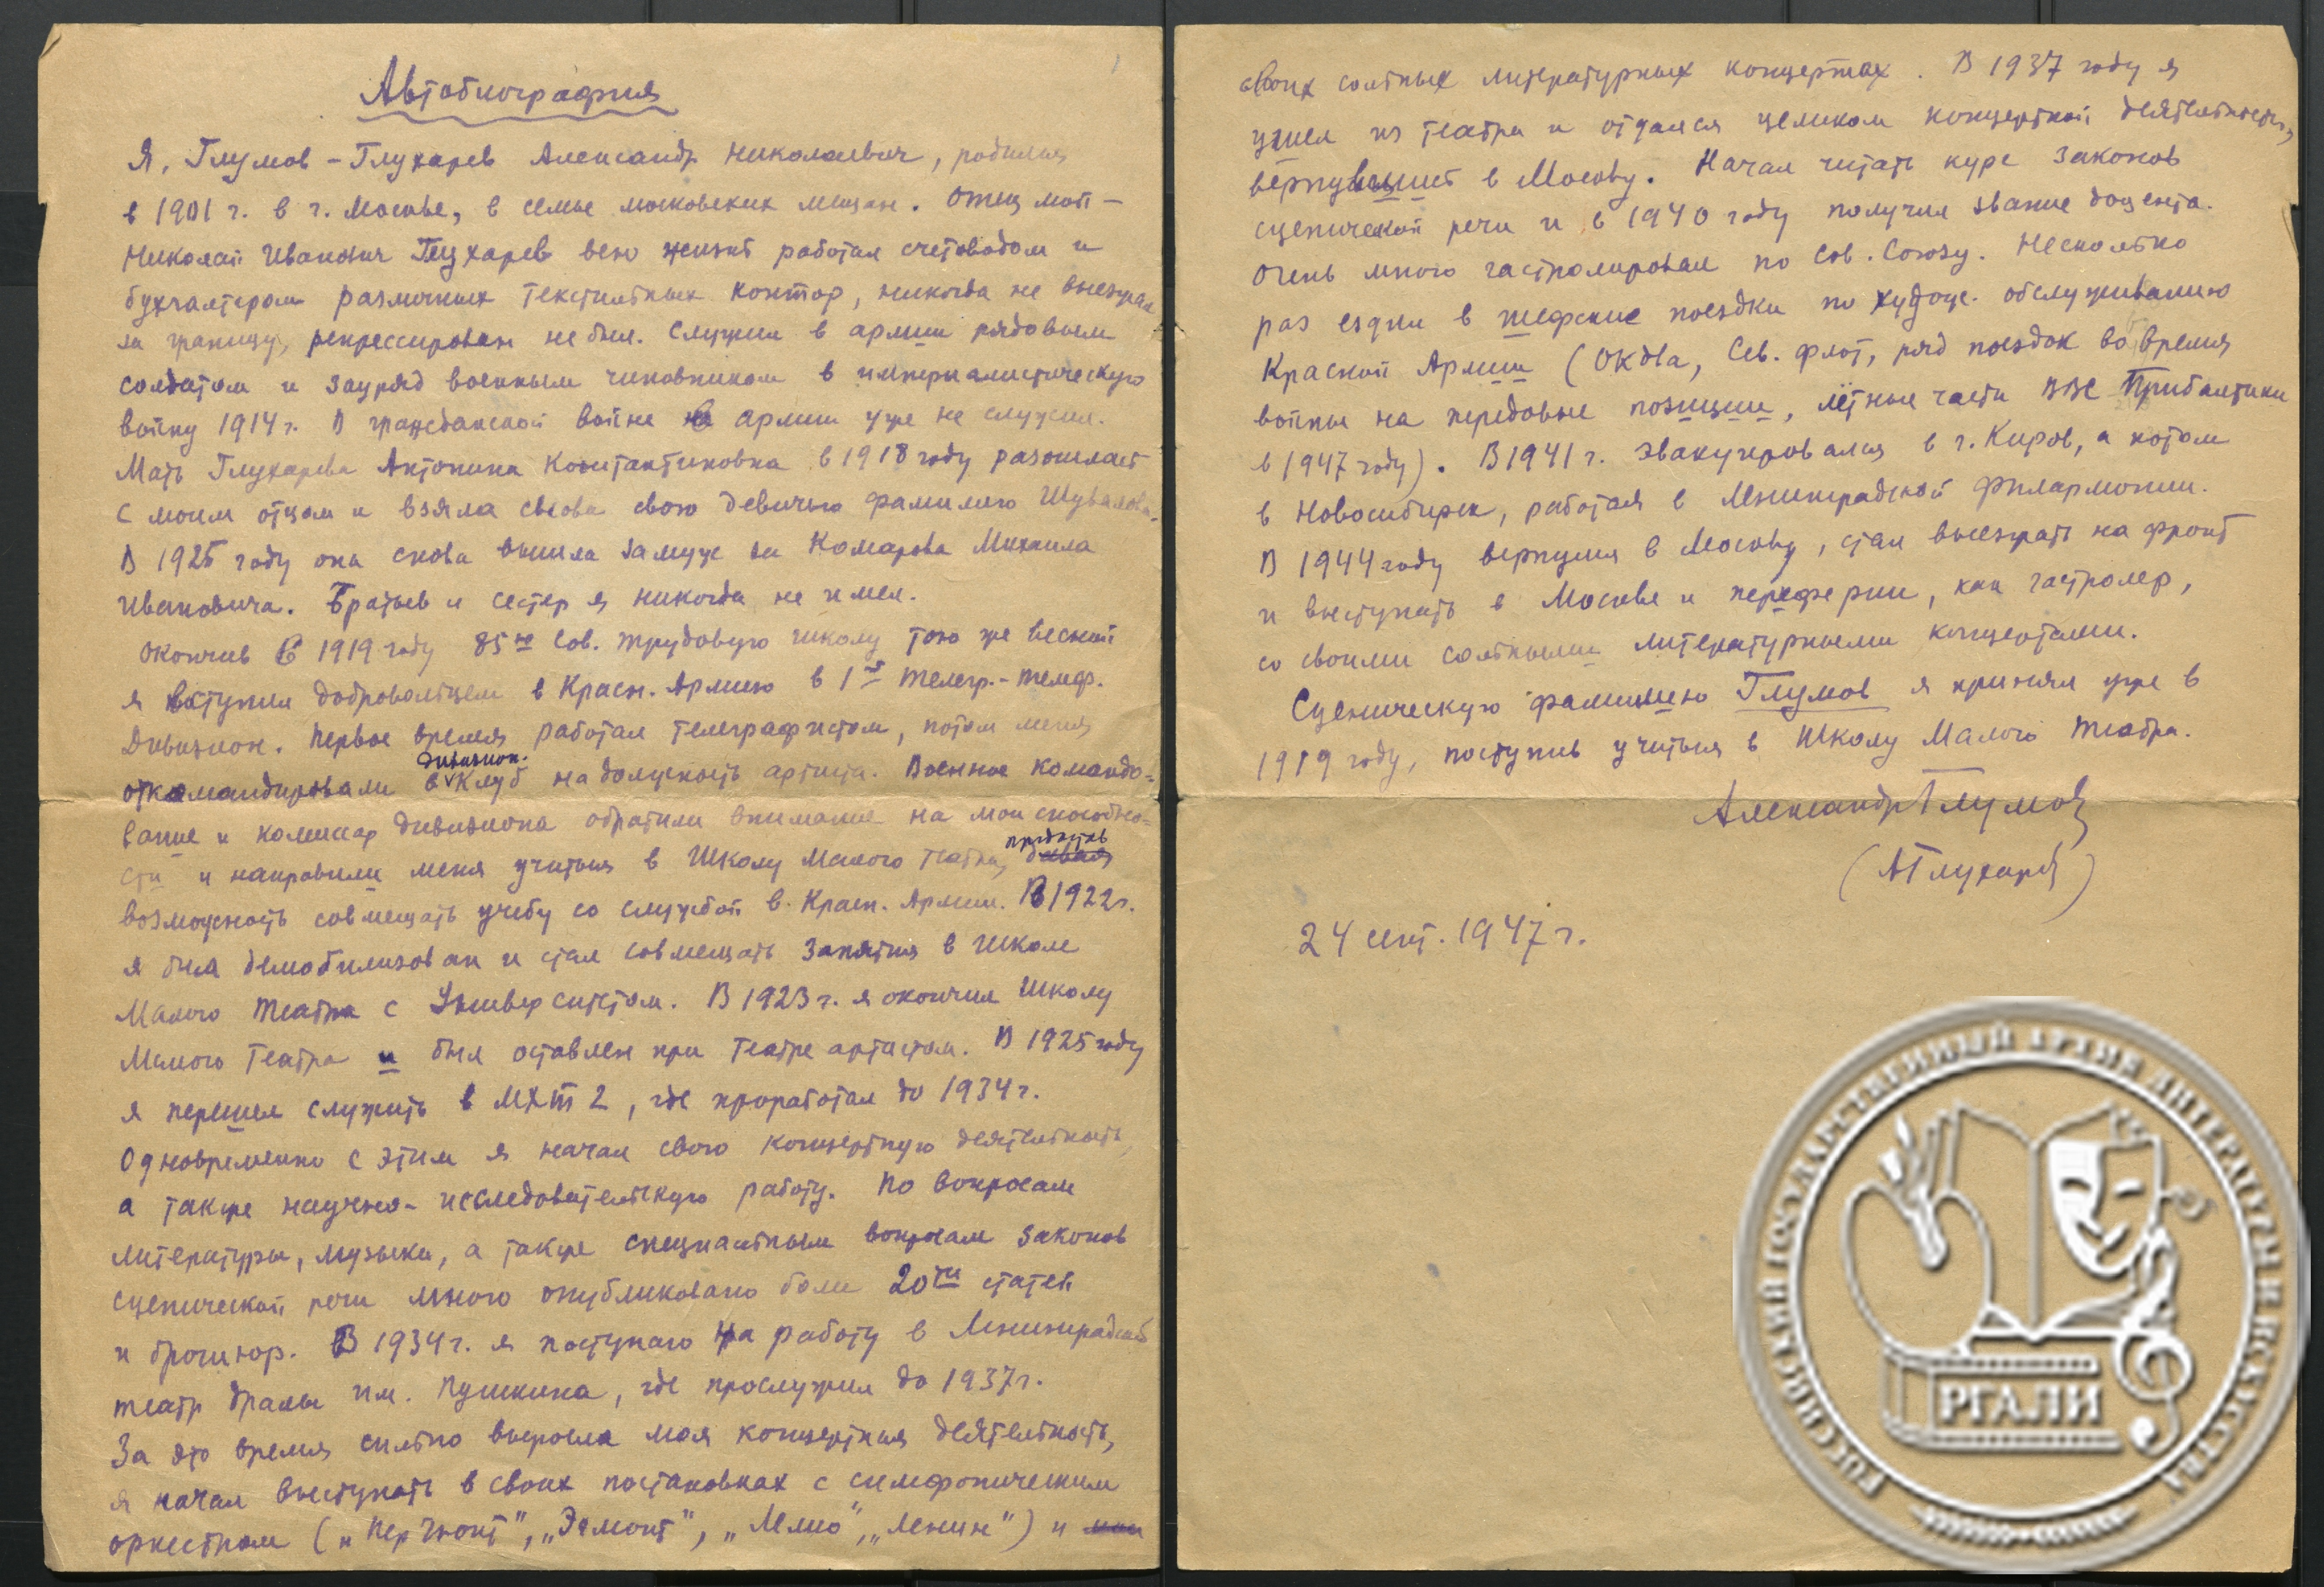 Автобиография
Я, Глумов-Глухарев Александр Николаевич, родился
в 1901 г. в г. Москве, в семье московских мещан. Отец мой –
Николай Иванович Глухарев всю жизнь работал счетоводом и
бухгалтером различных текстильных контор, никогда не выезжал
за границу, репрессирован не был. Служил в армии рядовым
солдатом и зауряд военным чиновником в империалистическую
войну 1914 г. В гражданской войне в армии уже не служил.
Мать Глухарева Антонина Константиновна в 1918 году разошлась
с моим отцом и взяла снова свою девичью фамилию Шувалова.
В 1925 году она снова вышла замуж за Комарова Михаила
Ивановича. Братьев и сестер я никогда не имел.
Окончив в 1919 году 85ю Сов. трудовую школу тою же весной
я вступил добровольцем в Красн. Армию в 1й телегр.-телеф.
Дивизион. Первое время работал телеграфистом, потом меня
откомандировали в дивизион. Клуб на должность артиста. Военное командо-
вание и комиссар дивизиона обратили внимание на мои способно-
сти и направили меня учиться в Школу Малого театра, давая предоставив
возможность совмещать учебу со службой в Красн. Армии. В 1922 г.
я был демобилизован и стал совмещать занятия в Школе
Малого театра с Университетом. В 1923 г. я окончил Школу
Малого театра и был оставлен при театре артистом. В 1925 году
я перешел служить в МХТ 2, где проработал до 1934 г.
Одновременно с этим я начал свою концертную деятельность,
а также научно-исследовательскую работу. По вопросам
литературы, музыки, а также специальным вопросам законов
сценической речи мною опубликовано более 20ти статей
и брошюр. В 1934 г. я поступаю на работу в Ленинградский
театр драмы им. Пушкина, где прослужил до 1937 г.
За это время сильно выросла моя концертная деятельность,
я начал выступать в своих постановках с симфоническим
оркестром („Пер Гюнт", „Эгмонт", „Лелио", „Ленин") и
своих сольных литературных концертах. В 1937 году я
ушел из театра и отдался целиком концертной деятельности,
вернувшись в Москву. Начал читать курс законов
сценической речи и в 1940 году получил звание доцента.
Очень много гастролировал по Сов. Союзу. Несколько
раз ездил в шефские поездки по худож. обслуживанию
Красной Армии (ОКДВА, Сев. флот, ряд поездок во время
войны на передовые позиции, лётные части ВВС Прибалтики
в 1947 году). В 1941 г. эвакуировался в г. Киров, а потом
в Новосибирск, работая в Ленинградской филармонии.
В 1944 году вернулся в Москву, стал выезжать на фронт
и выступать в Москве и переферии, как гастролер,
со своими сольными литературными концертами.
Сценическую фамилию Глумов я принял уже в
1919 году, поступив учиться в Школу Малого театра.
Александр Глумов
(А Глухарев)
24 сент. 1947 г.
РОССИЙСКИЙ ГОСУДАРСТВЕННЫЙ АРХИВ ЛИТЕРАТУРЫ И ИСКУССТВА
РГАЛИ